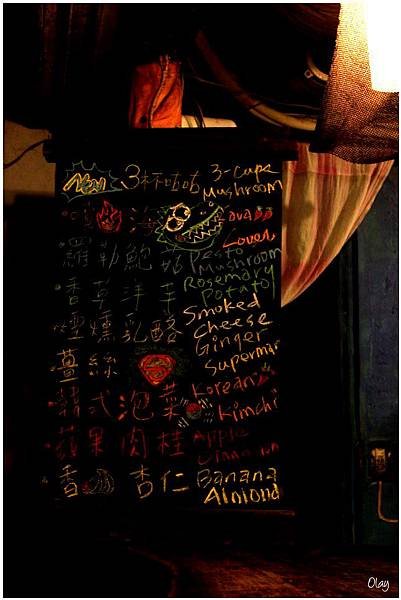 New 3杯咕咕 3-cups
Mushroom
Lava
Lover
羅勒鮑菇 Pesto
Mushroom
香草洋芋 Rosemary
Potato
Smoked
煙燻乳酪 Cheese
薑絲 Ginger
Superman
韓式泡菜 Korean
Kimchi
蘋果肉桂 Apple
Cinnamon
香 杏仁 Banana
Almond
Olay